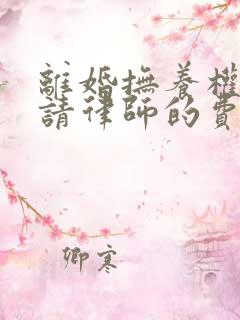 離婚撫養權
請律師的費
卿寒